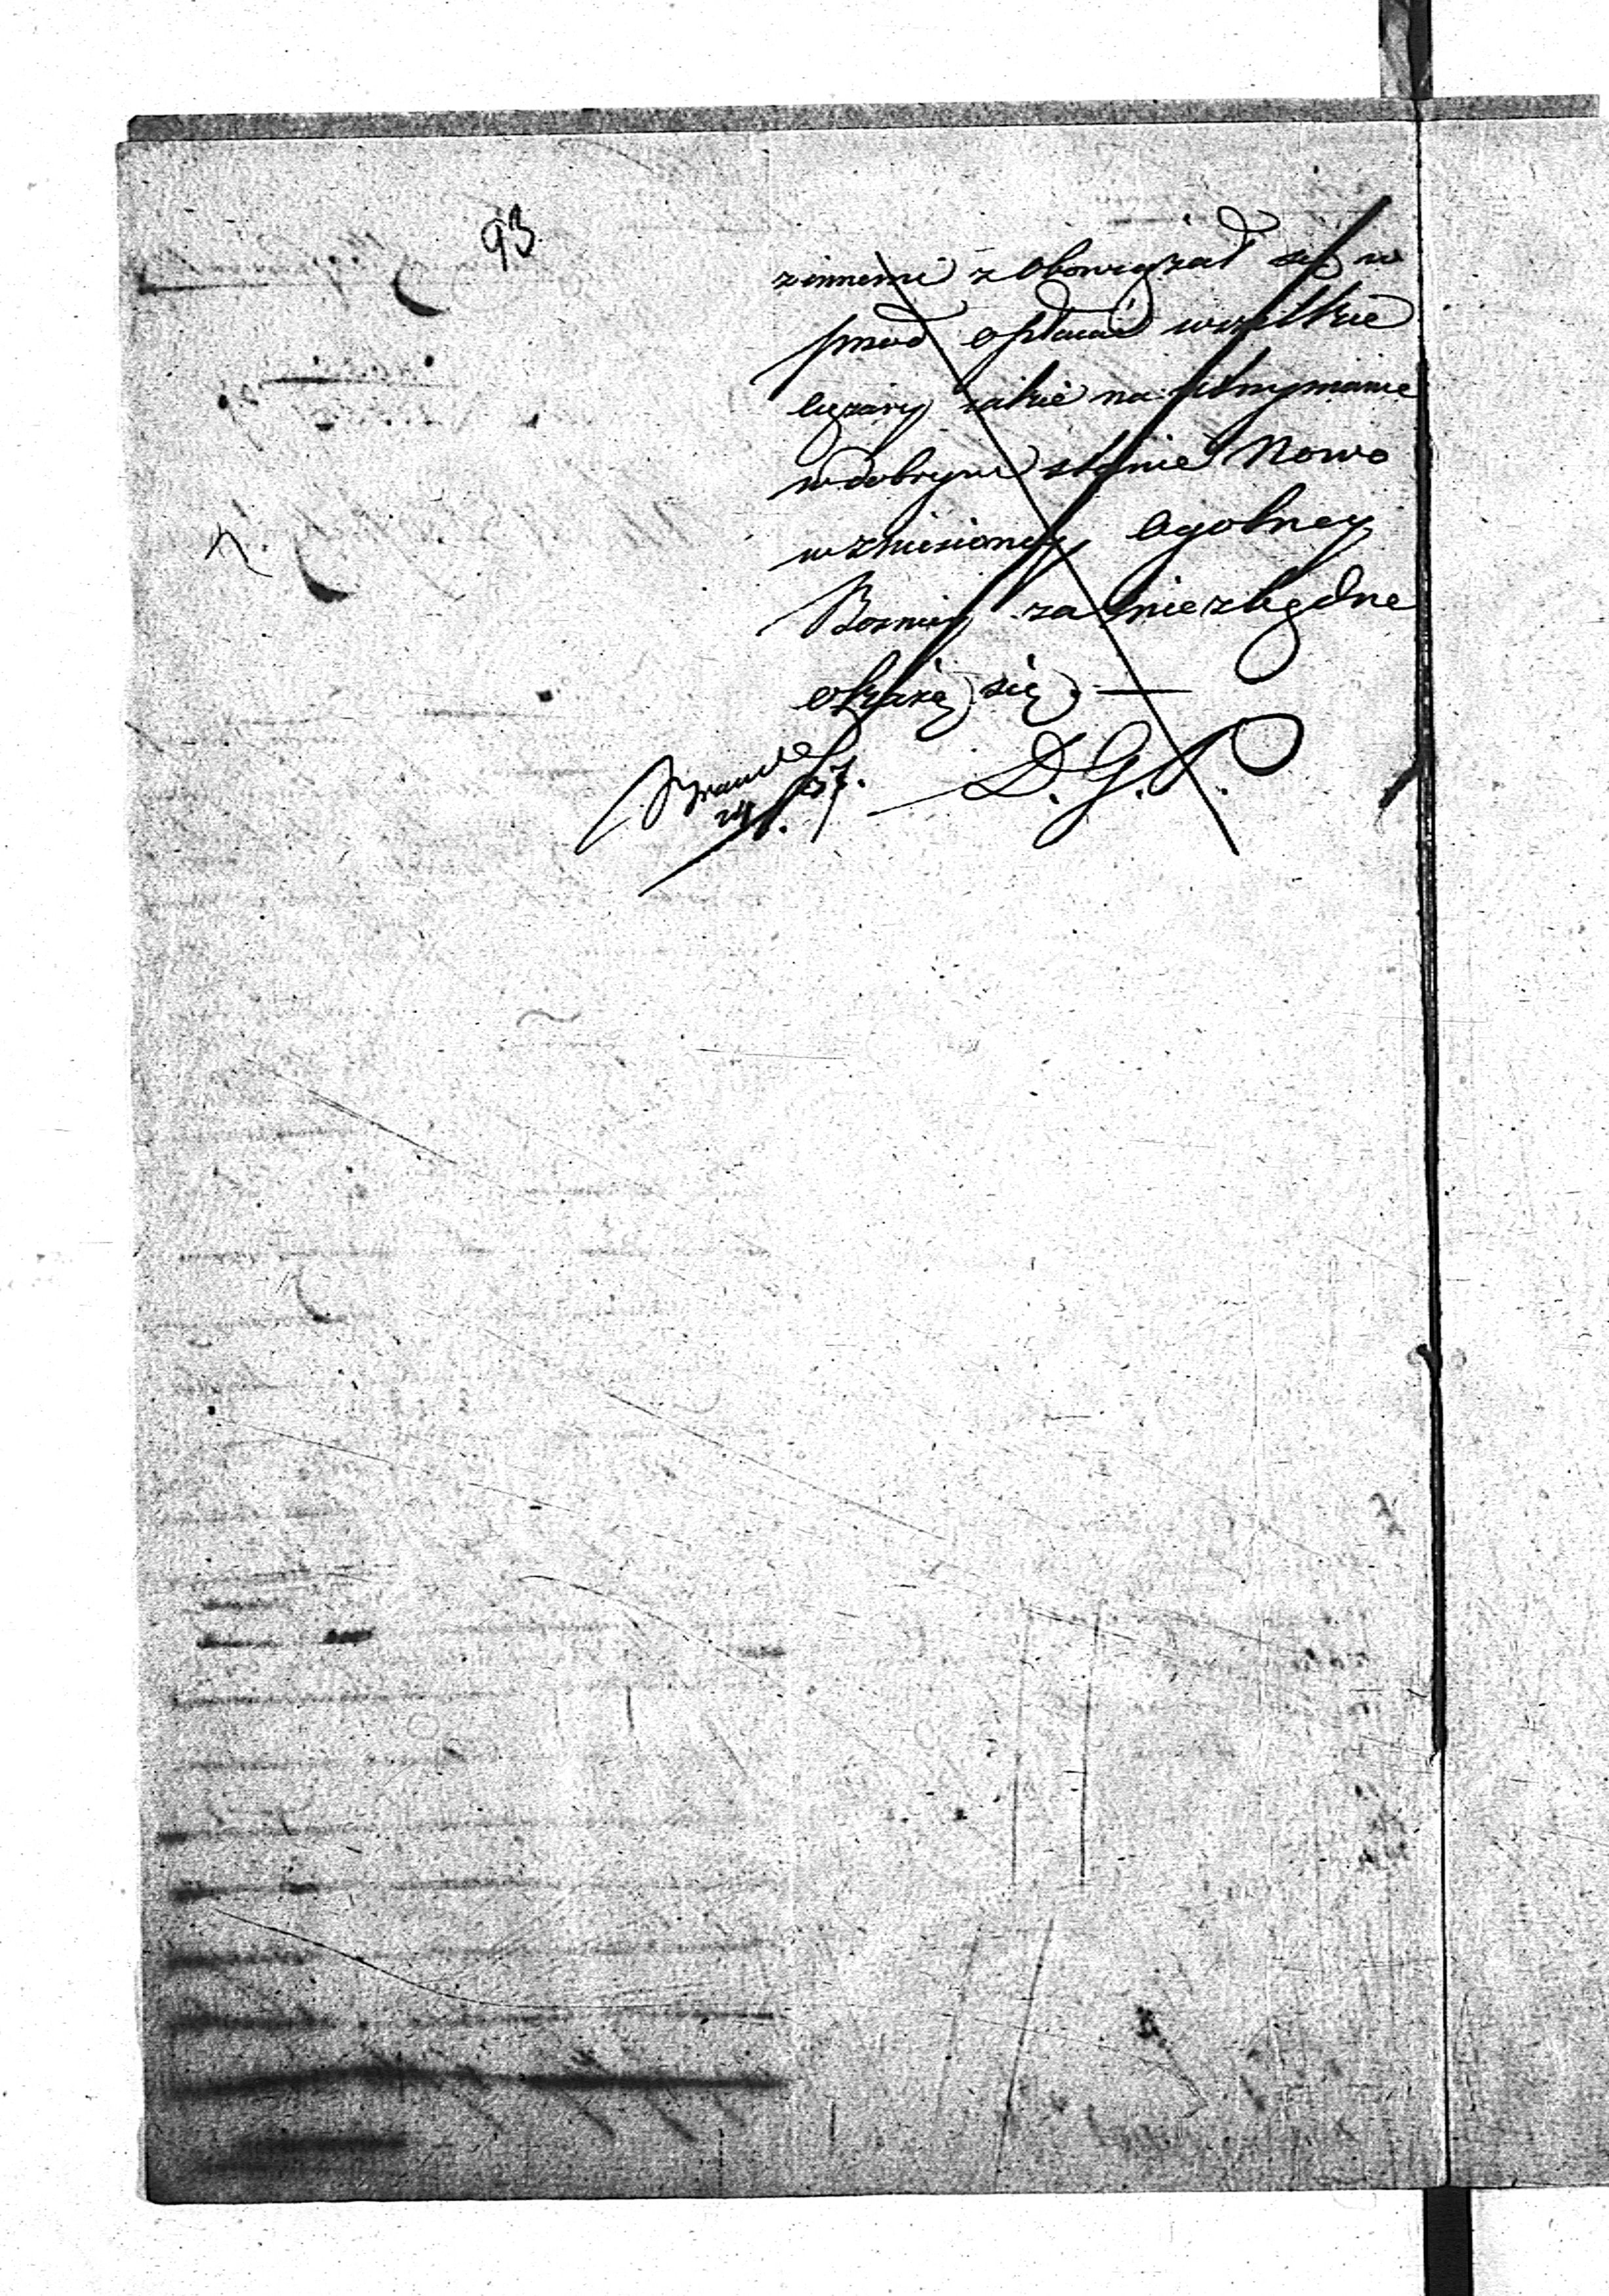 93
zinnemi zobowiązał się w
przod opłacać wszelkie
ciężary jakie na utrzymanie
w dobrym stanie Nowo
wzniesioney ogolney
Bożnicy za niezbędne
okażą się. —
D. G. P.